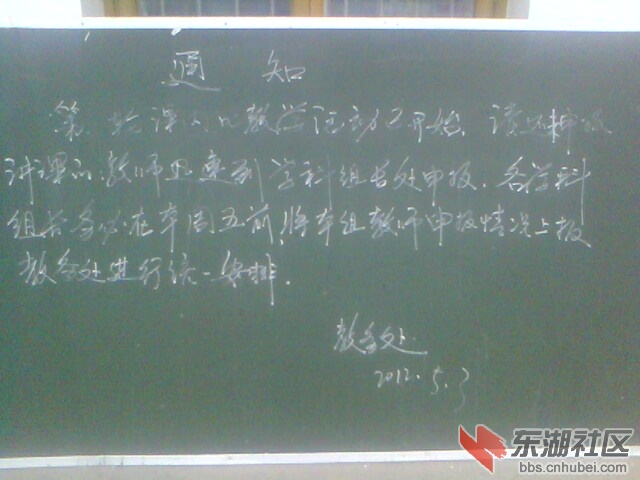 通知
第一轮课人比教学活动已开始,请还掉
讲课的教师迅速到学科组长处申报。各学科
组长务必在本周五前,将本组教师申报情况上报
教务处进行统一安排。
教务处
2012.5.3
东湖社区
bbs.cnhubei.com